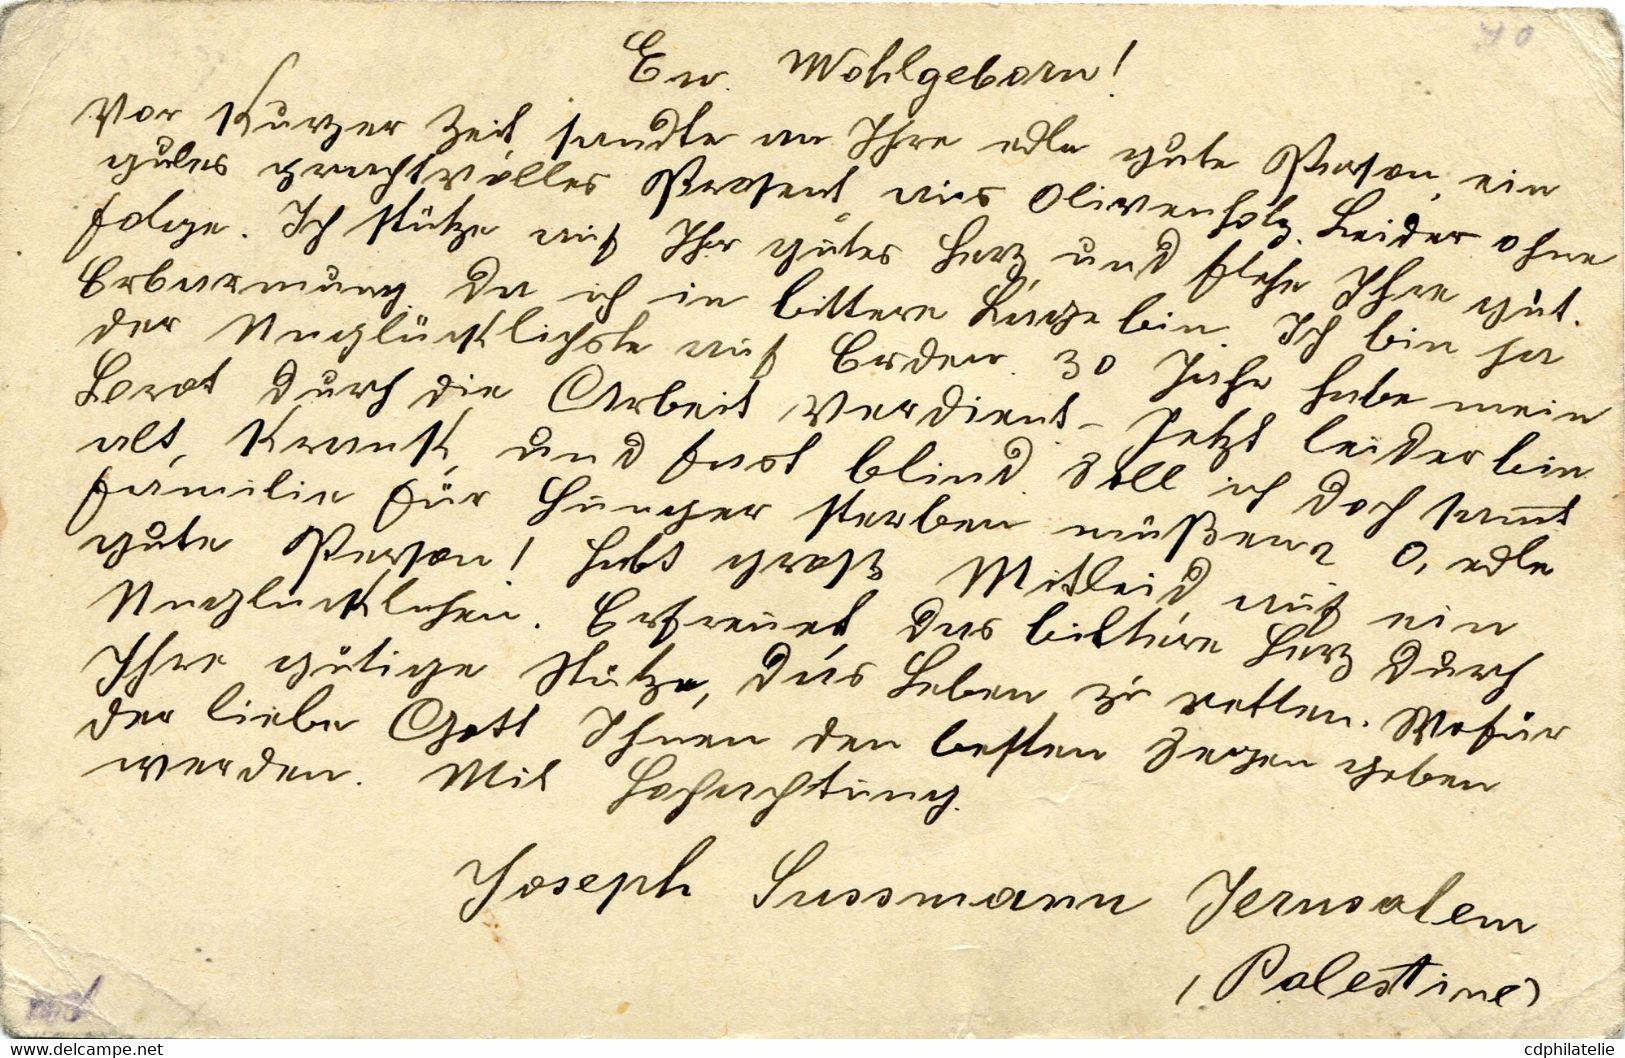 40
Ew. Wohlgeborn!
Vor Kurzer Zeit sandte an Ihre edle gute Person, ein
gutes prachtvolles Present aus Olivenholz. Leider ohne
folge. Ich stütze auf Ihr gutes Herz und flehe Ihre güt.
Erbarmung. Da ich in bittere Lage bin. Ich bin ja
der Unglücklichste auf Erden. 30 Jahr habe mein
Brot durch die Arbeit verdient - Jetzt leider bin
alt, Krank, und fast blind. Soll ich doch samt
familie für Hunger sterben müßen? O, edle
gute Person! Habt groß Mitleid auf ein
Unglücklichen. Erfreuet das bittere Herz durch
Ihre gütige Stütze, das Leben zu retten. Wofür
der liebe Gott Ihnen den besten Segen geben
werden. Mit Hochachtung.
Joseph Sussmann Jerusalem
(Palestine)
cdphilatelie